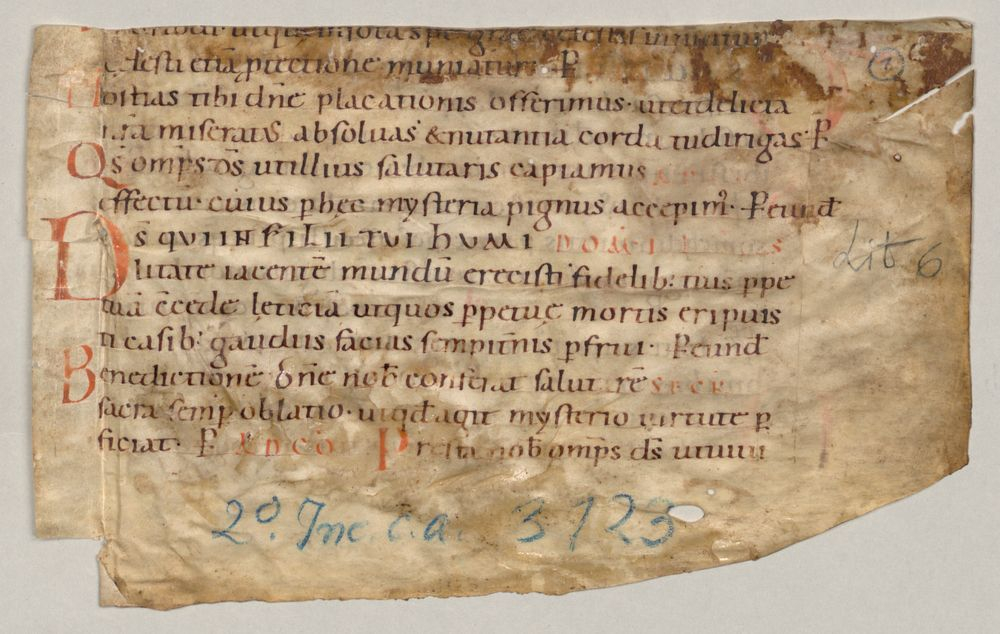 cęlesti etiā ptectione muniatur P
Hostias tibi dn̄e placationis offerimus. ut et delicta
nr̄a miseratus absolvas & nutantia corda tu dirigas P
Qs om̄ps ds̄ ut illius salutaris capiamus
effectū cuius p hec mysteria pignus accepim᷒. P eund
Ds̄ QUI IN FILII TUI hUMI
litate iacentē mundū erexisti fidelib: tuis ppe
tuā c̄cede lęticiā ut quos ppetuę mortis eripuis
ti casib: gaudiis facias sempit̄nis pfrui. P eund
Benedictionē dn̄e nob̄ conferat salutarē SECR
sacra semp oblatio. ut qd̄ agit mysterio virtute p
ficiat. P AD CO Presta nob̄ omp̄s ds̄ ut viui
Lit 6
2o. Inc. c. a. 3723